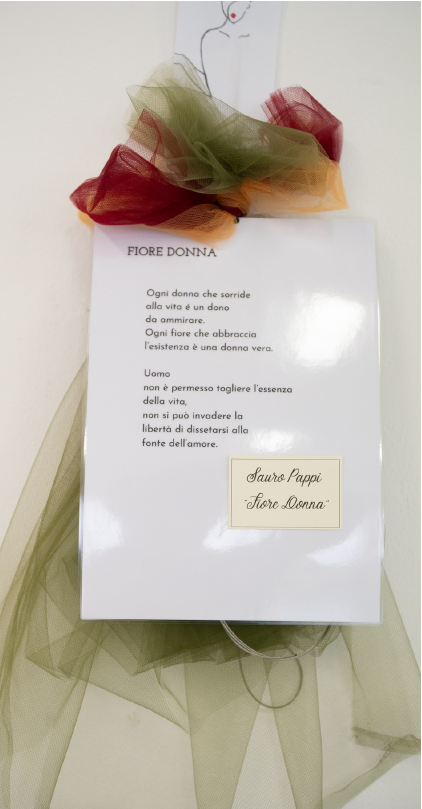 FIORE DONNA
Ogni donna che sorride
alla vita é un dono
da ammirare.
Ogni fiore che abbraccia
l'esistenza è una donna vera.
Uomo
non è permesso togliere l'essenza
della vita,
non si può invadere la
libertà di dissetarsi alla
fonte dell'amore.
Sauro Pappi
"Fiore Donna"